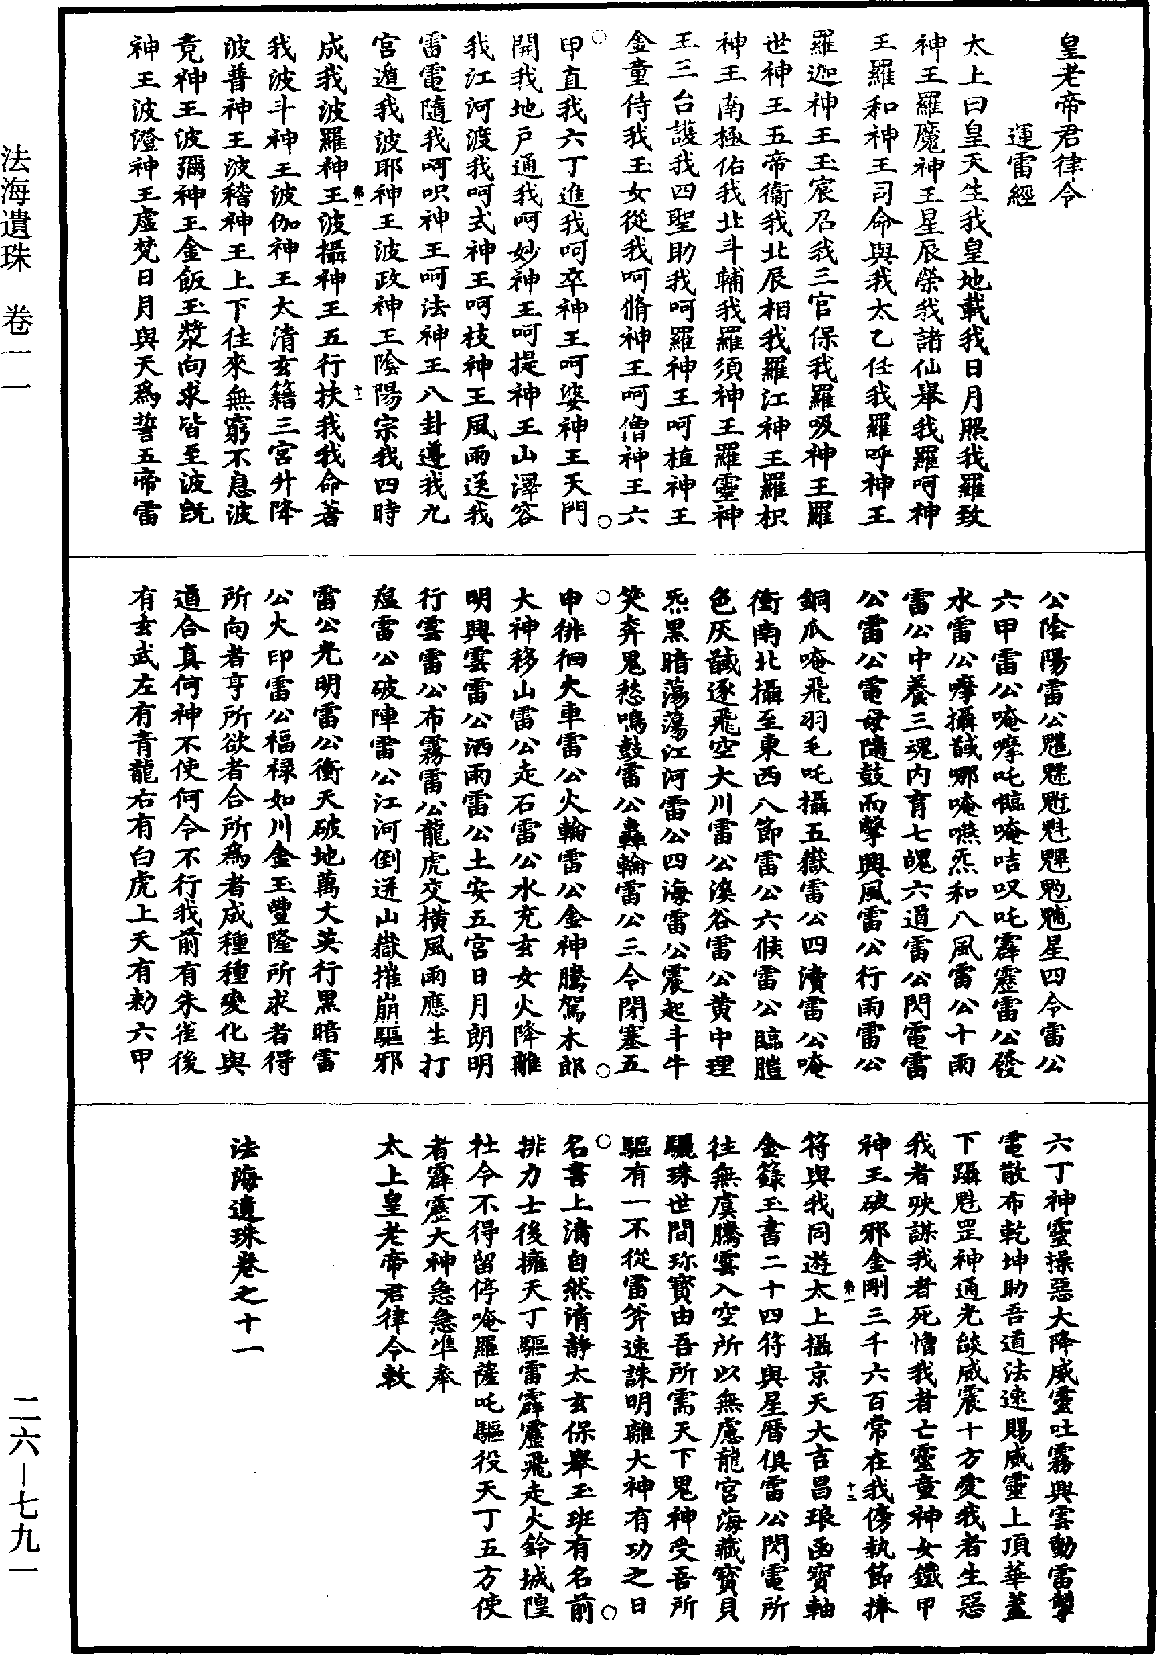 皇老帝君律令
運雷經
太上曰皇天生我皇地載我日月照我羅致
神王羅魔神王星辰榮我諸仙舉我羅呵神
王羅和神王司命與我太乙任我羅呼神王
羅迦神王玉宸召我三官保我羅吸神王羅
世神王五帝衞我北辰相我羅江神王羅枳
神王南極佑我北斗輔我羅須神王羅靈神
王三台護我四聖助我呵羅神王呵植神王
金童侍我玉女從我呵脩神王呵僧神王六
甲直我六丁進我呵卒神王呵娑神王天門
開我地戶通我呵妙神王呵提神王山澤容
我江河渡我呵式神王呵枝神王風雨送我
雷電隨我呵呎神王呵法神王八卦遵我九
宮遁我波耶神王波政神王陰陽宗我四時
成我波羅神王波攝神王五行扶我我命著
我波斗神王波伽神王太清玄籍三宮升降
波普神王波稽神王上下往來無窮不息波
竟神王波彌神王金飯玉漿向求皆至波旣
神王波澄神王虛梵日月與天爲誓五帝雷
公陰陽雷公魓星四令雷公
六甲雷公唵摩吒唵咭叹吒霹靂雷公發
水雷公摩攝馘哪唵嚥炁和八風雷公十雨
雷公中養三魂內育七魄六道雷公閃電雷
公雷公電母隨鼓而擊興風雷公行雨雷公
銅爪唵飛羽毛吒攝五嶽雷公四瀆雷公唵
衝南北攝至東西八節雷公六候雷公臨
色灰馘逐飛空大川雷公溪谷雷公黄中理
炁黑暗蕩蕩江河雷公四海雷公震起斗牛
笑奔鬼愁鳴鼓雷公轟輪雷公三令閉塞五
申徘徊火車雷公火輪雷公金神騰駕木郎
大神移山雷公走石雷公水充玄女火降離
明興雲雷公洒雨雷公土安五宮日月朗明
行雲雷公布霧雷公龍虎交横風雨應生打
瘟雷公破陣雷公江河倒迸山嶽摧崩驅邪
雷公光明雷公衝天破地萬丈英行黑暗雷
公火印雷公福禄如川金玉豐隆所求者得
所向者亨所欲者合所爲者成種種變化與
道合真何神不使何令不行我前有朱雀後
有玄武左有青龍右有白虎上天有勑六甲
六丁神靈操惡大降威靈吐霧興雲動雷擊
電散布乾坤助吾道法速賜威靈上頂華蓋
下躡魁罡神通光燄威震十方愛我者生惡
我者殃謀我者死憎我者亡靈童神女鐵甲
神王破邪金剛三千六百常在我傍執節捧
符與我同遊太上攝京天大吉昌琅函寶軸
金籙玉書二十四符與星曆俱雷公閃電所
往無虞騰雲入空所以無慮龍宮海藏寶貝
驪珠世間珎寶由吾所需天下鬼神受吾所
驅有一不從雷斧速誅明離大神有功之日
名書上清自然清静太玄保舉玉班有名前
排力士後擁天丁驅雷霹靂飛走火鈴城隍
社令不得留停唵羅薩吒驅役天丁五方使
者霹靂大神急急準奉
太上皇老帝君律令敕
法海遺珠卷之十一
法海遺珠 卷一一
二六—七九一